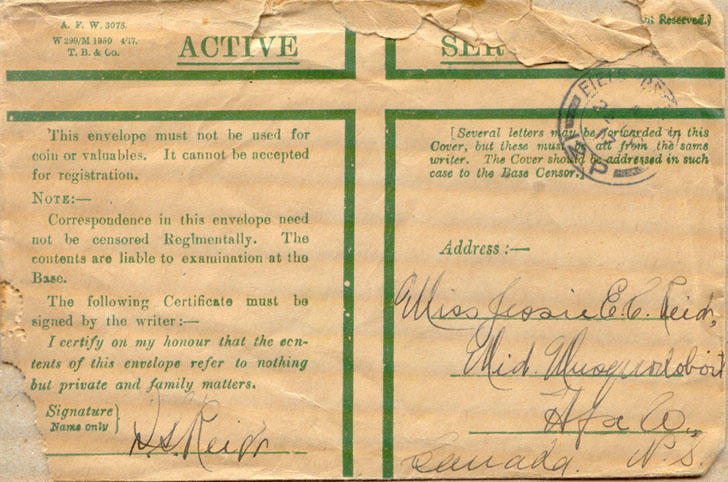 A. F. W. 3078.
W 299/M 1950 4/17.
T. B. & Co.
ACTIVE
SER
Reserved.)
This envelope must not be used for
coin or valuables. It cannot be accepted
for registration.
NOTE:—
Correspondence in this envelope need
not be censored Regimentally. The
contents are liable to examination at the
Base.
The following Certificate must be
signed by the writer:—
I certify on my honour that the con-
tents of this envelope refer to nothing
but private and family matters.
Signature
Name only
[Several letters may be forwarded in this
Cover, but these must be all from the same
writer. The Cover should be addressed in such
case to the Base Censor.]
Address:—
Miss Jessie E. C. Reid,
Mid. Musquodoboit
Hfx Co.
Canada. N.S.